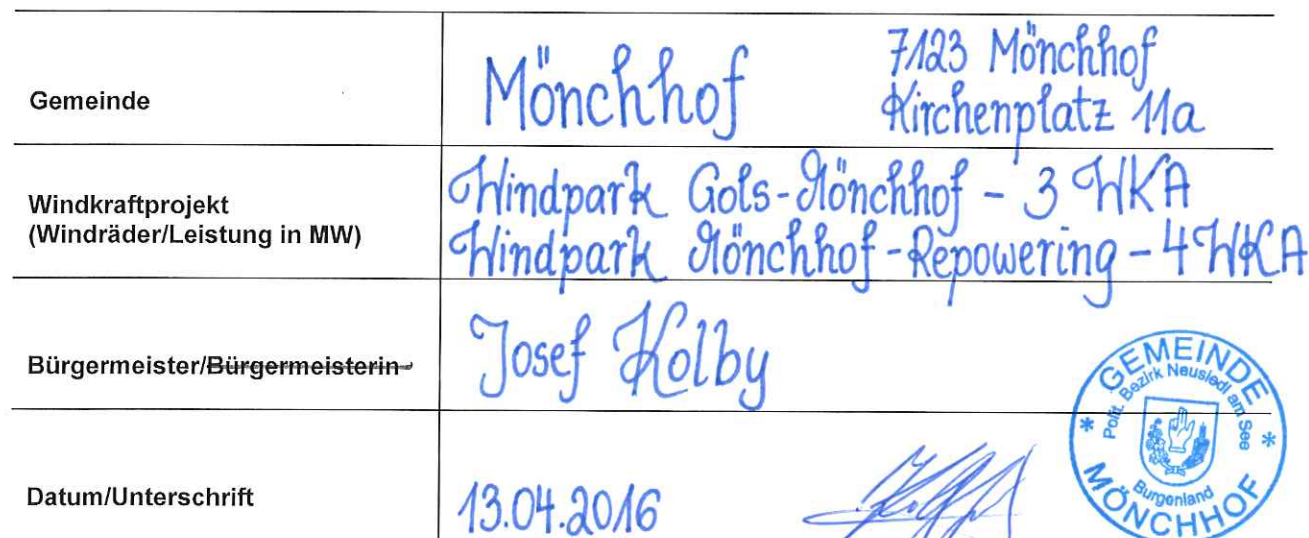 Gemeinde
Mönchhof
7123 Mönchhof
Kirchenplatz 11a
Windkraftprojekt
(Windräder/Leistung in MW)
Windpark Gols-Mönchhof - 3 WKA
Windpark Mönchhof-Repowering - 4 WKA
Bürgermeister/Bürgermeisterin
Josef Kolby
Datum/Unterschrift
13.04.2016
GEMEINDE
Polit. Bezirk Neusiedl am See
Burgenland
* MÖNCHHOF *